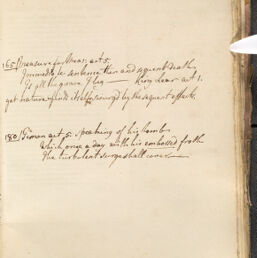 165 Measure for Meas: act 5.
Immediate sentence then and sequent death,
Is all the grace I beg — King Lear act 1.
yet nature finds itself scourg'd by the sequent effects.
180 Timon act 5: speaking of his tomb
Which once a day with his embossed froth
The turbulent surge shall cover —